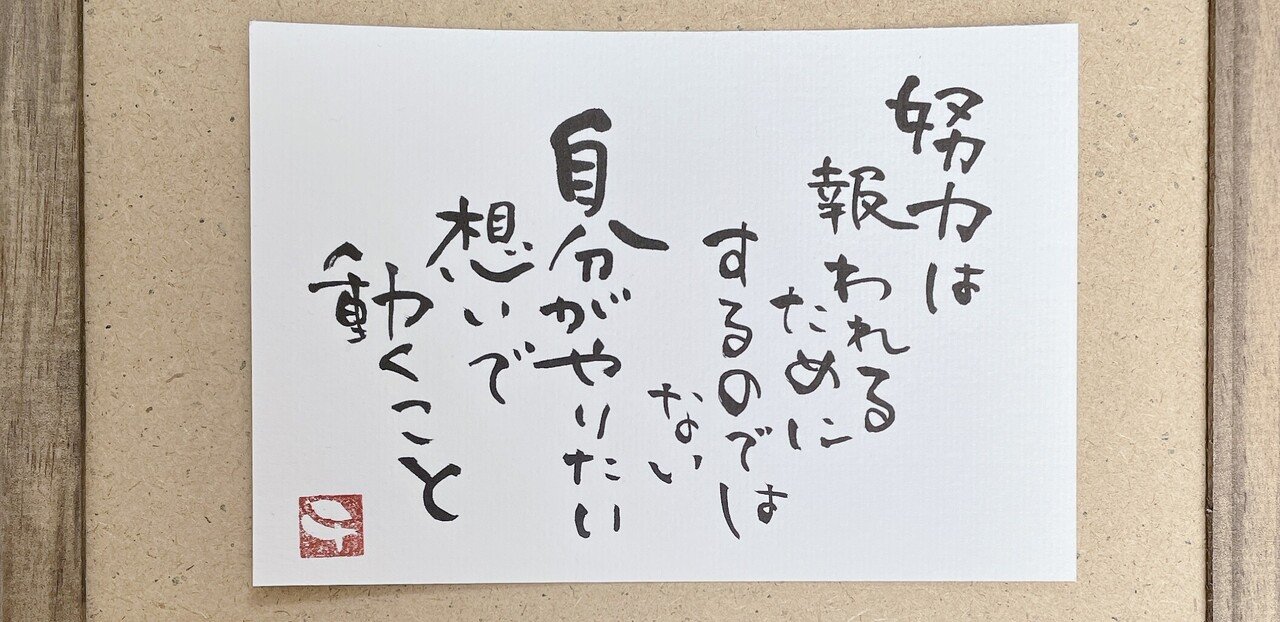 努力は
報われる
ために
するのでは
ない
自分がやりたい
想いで
動くこと